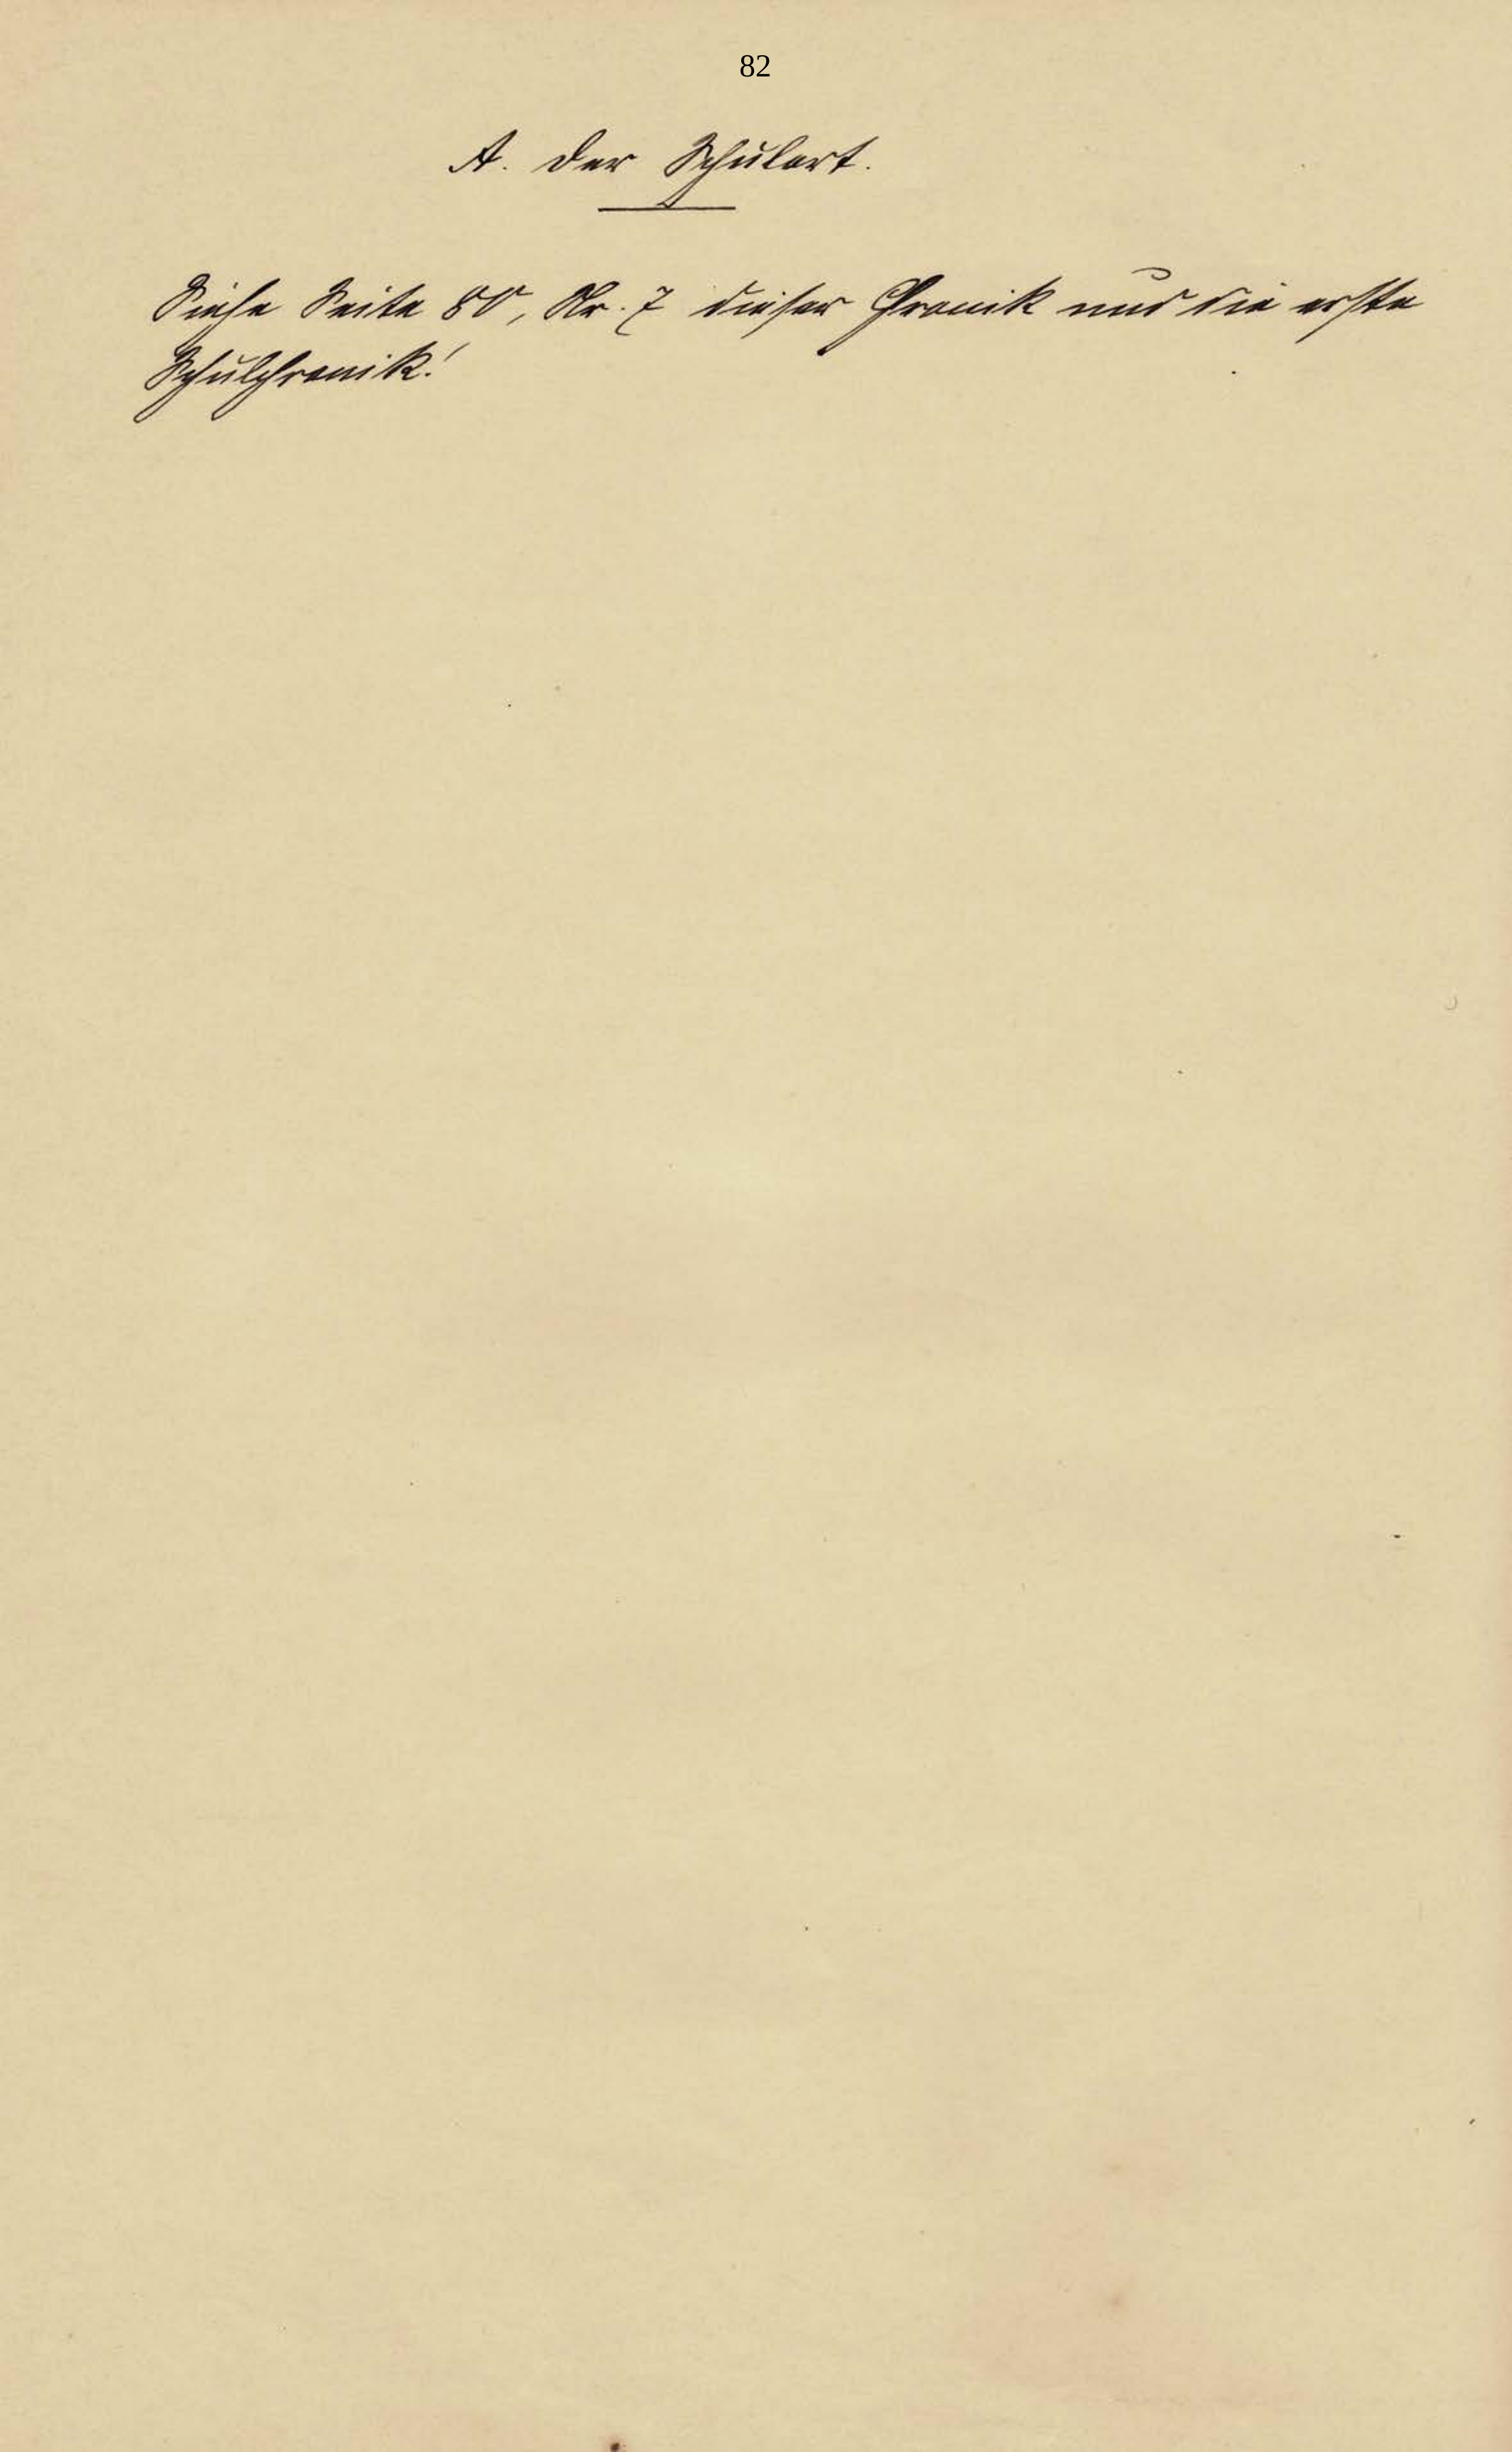 82
A. Der Schulort.
Siehe Seite 80, Nr. 7 dieser Chronik und die erste
Schulchronik!